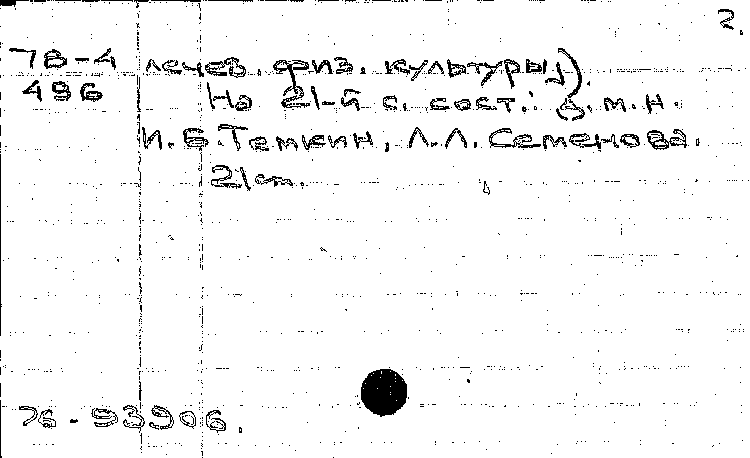 2.
7В-4 лечев. физ. культуры).
496 На 21-й с. сост.: д.м.н.
И.Б.Темкин, Л.Л. Семенова.
21см.
76-93906.